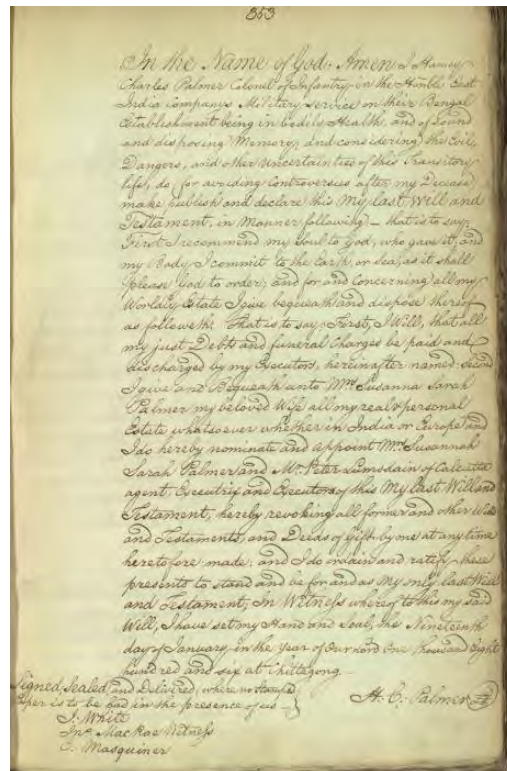 353
In the Name of God. Amen I Harvey
Charles Palmer Colonel of Infantry in the Honble East
India Companys Military Service on their Bengal
Establishment being in bodily Health, and of Sound
and disposing Memory, and considering the Evil,
Dangers, and other uncertainties of this Transitory
life, do, for avoiding Controversies after my Decease
make publish and declare this My last Will and
Testament, in Manner following – that is to say,
First I recommend my Soul to God, who gave it, and
my Body, I commit to the Earth, or Sea, as it shall
please God to order; and for and Concerning all my
Worldly Estate I give bequeath and dispose thereof
as followeth: That is to say First, I Will, that all
my just Debts and funeral Charges be paid and
discharged by my Executors, hereinafter named. Second
I give and Bequeath unto Mrs Susanna Sarah
Palmer my beloved Wife all my real & personal
Estate whatsoever whether in India or Europe and
I do hereby nominate and appoint Mrs Susannah
Sarah Palmer and Mr Peter Lumsdain of Calcutta
agent, Executrix and Executors of this My last Will and
Testament, hereby revoking all former and other Wills
and Testaments, and Deeds of Gift by me at any time
heretofore made, and I do ordain and ratify these
presents to stand and be for and as My only last Will
and Testament, In Witness whereof to this my said
Will, I have set my Hand and Seal, the Nineteenth
day of January, in the Year of Our Lord One thousand Eight
hundred and six at Chittagong.
Signed, Sealed, and Delivered, where no stamped
Paper is to be had in the presence of us –
H. C. Palmer
J. White
Jno. MacRae Witness
C. Masquiner